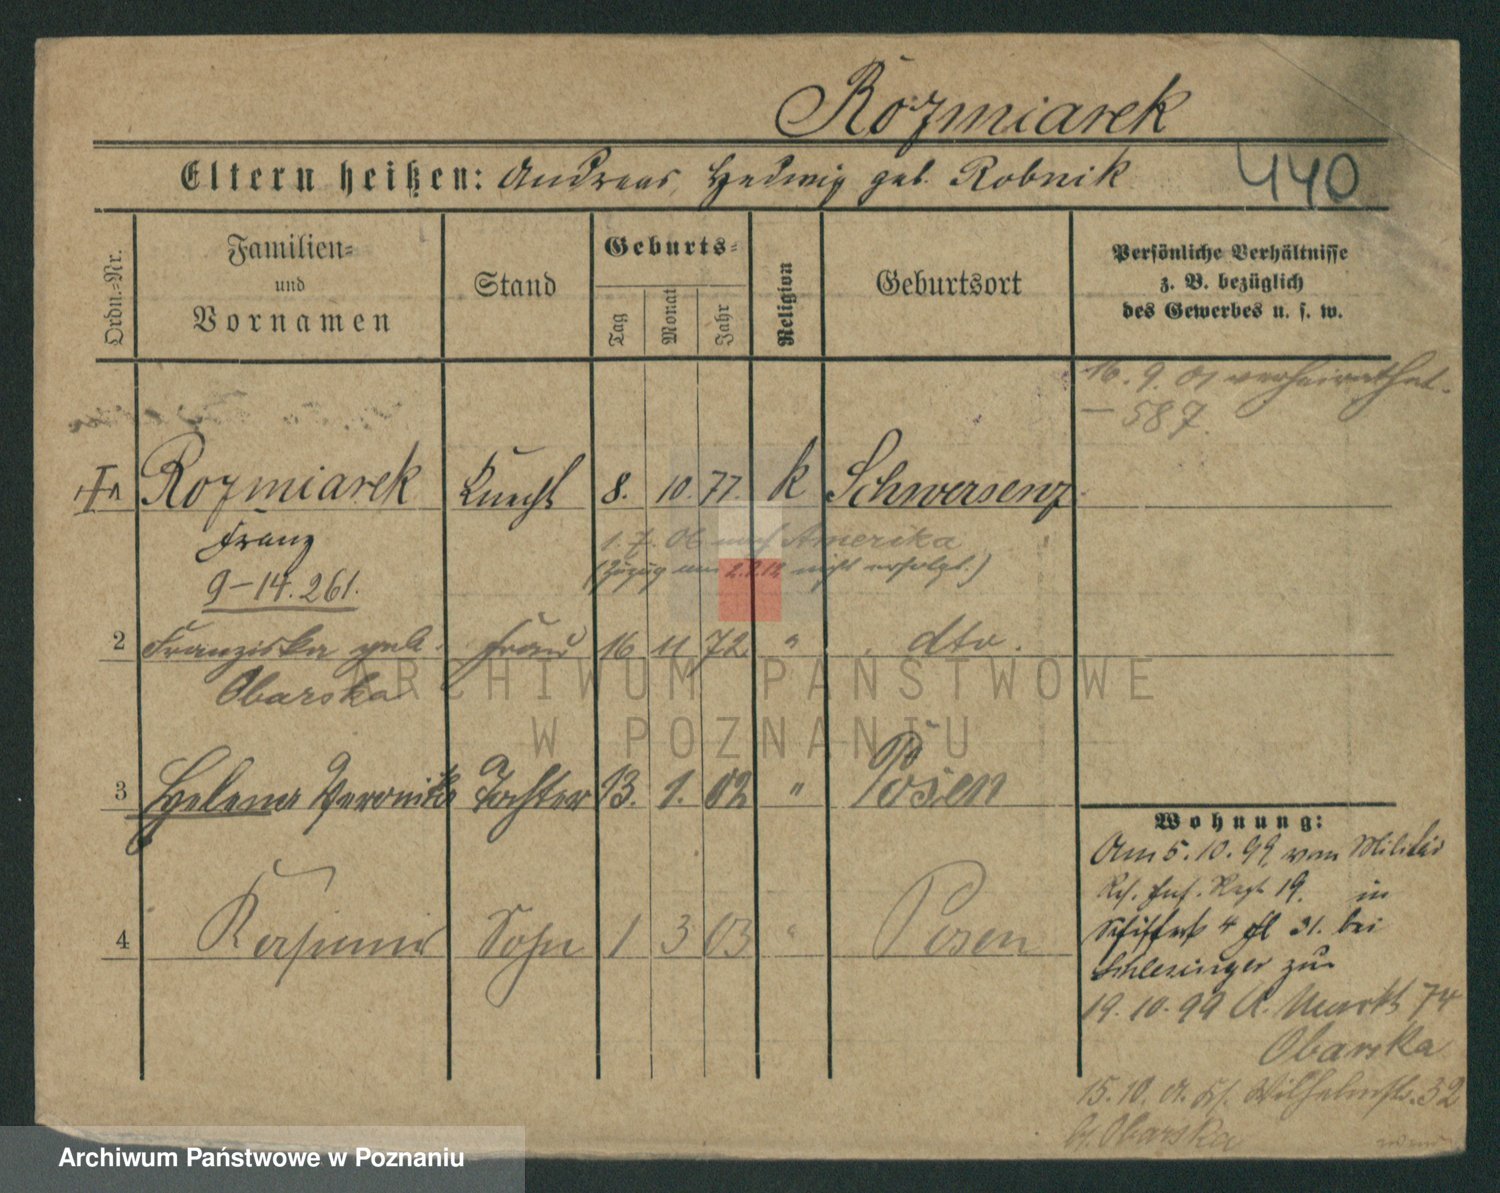 Rozmiarek
Eltern heißen: Andreas, Hedwig geb. Robnik
440
Ordn.-Nr.
Familien-
und
Vornamen
Stand
Geburts-
Tag
Monat
Jahr
Religion
Geburtsort
Persönliche Verhältnisse
z. B. bezüglich
des Gewerbes u. s. w.
16. 9. 01 verheirathet.
— 587.
Rozmiarek Knecht 8. 10. 77. k Schwersenz
Franz
1. 7. 06 nach Amerika
(Zuzug am 2.2.12 nicht erfolgt.)
9–14.261.
2 Franziska geb. Frau 16 11 72 " dto.
Obarska
3 Helena Veronika Tochter 13. 1. 02 " Posen
4 Kasimir Sohn 1 3 03 " Posen
Wohnung:
Am 5.10.99 vom Militär
Inf. Regt 19. in
4 31. bei
Schlesinger zu
19.10.99 A. Markt 74
Obarska
15.10. Wilhelmstr. 32
b. Obarska
ARCHIWUM PAŃSTWOWE
W POZNANIU
Archiwum Państwowe w Poznaniu